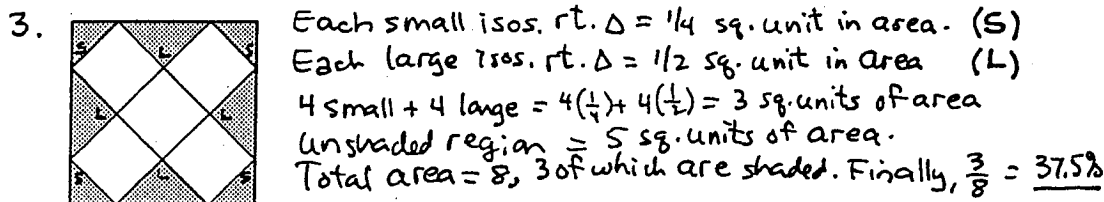 3.
Each small isos. rt. Δ = 1/4 sq. unit in area. (S)
Each large isos. rt. Δ = 1/2 sq. unit in area (L)
4 small + 4 large = 4(1/4) + 4(1/2) = 3 sq. units of area
unshaded region = 5 sq. units of area.
Total area = 8, 3 of which are shaded. Finally, 3/8 = 37.5%
S L S
L L
S L S